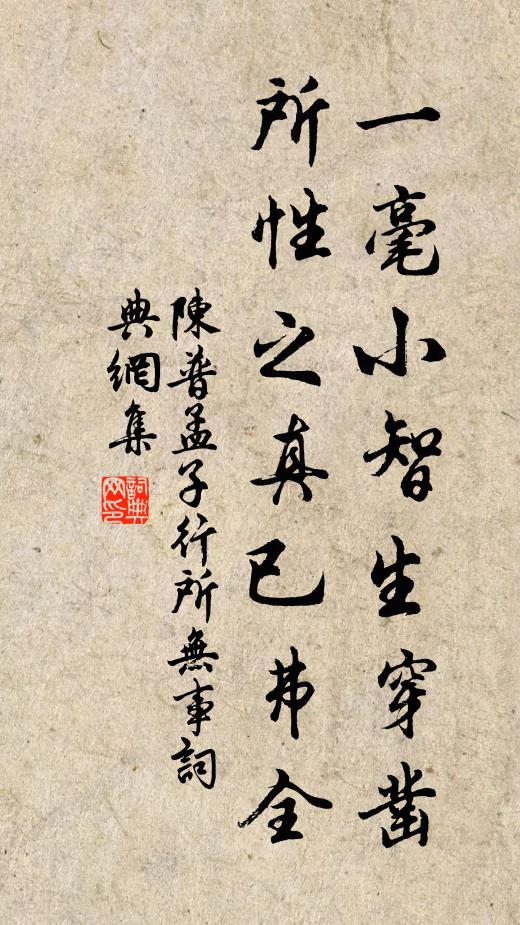 一毫小智生穿凿
所性之真已弗全
陳普孟子行所無事詞
典網集
詞典
网印